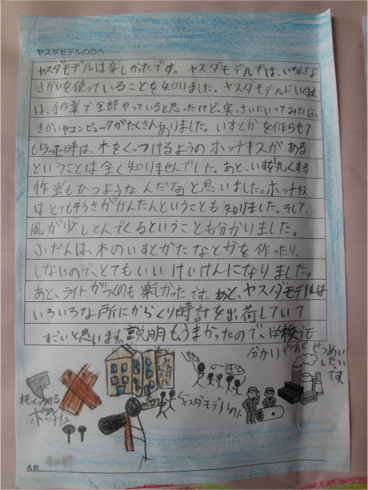 ヤスダモデルの方へ
ヤスダモデルは楽しかったです。ヤスダモデルでは、いろんな
きかいを使っていることを知りました。ヤスダモデルにいく前
は、手作業で全部やっていると思ったけど、実さいにいってみたら、
きかいやコンピュータがたくさんありました。いすとかを作らせて
もらった時は、木をくっつけるようのホッチキスがある
ということは全く知りませんでした。あと、いすを丸くする
作業もひつようなんだなと思いました。ホッチキス
はとてもそうさがかんたんということも知りました。そして、
風が少しとんでるということも分かりました。
ふだんは、木のいすとかたなとかを作ったり、
しないので、とてもいいけいけんになりました。
あと、ライトがつくのも楽しかったです。あと、ヤスダモデルは
いろいろな所にからくり時計を出荷していて
すごいと思います。説明もうまかったので、学校でも
分かりやすくせつめい
したい
です。
ホッチキス
ヤスダモデルの人
名前